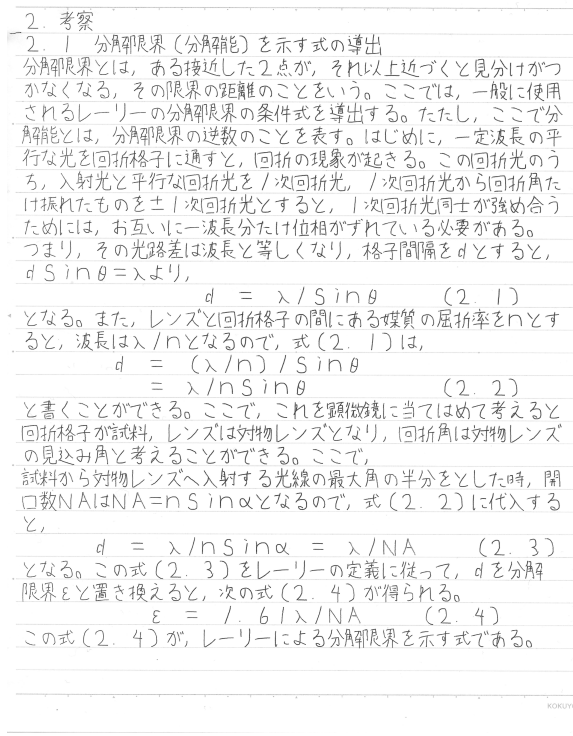 2. 考察
2. 1 分解限界(分解能)を示す式の導出
分解限界とは, ある接近した2点が, それ以上近づくと見分けがつ
かなくなる, その限界の距離のことをいう。ここでは, 一般に使用
されるレーリーの分解限界の条件式を導出する。ただし, ここで分
解能とは, 分解限界の逆数のことを表す。はじめに, 一定波長の平
行な光を回折格子に通すと, 回折の現象が起きる。この回折光のう
ち, 入射光と平行な回折光を1次回折光, 1次回折光から回折角だ
け振れたものを±1次回折光とすると, 1次回折光同士が強め合う
ためには, お互いに一波長分だけ位相がずれている必要がある。
つまり, その光路差は波長と等しくなり, 格子間隔をdとすると,
dSinθ=λより,
d = λ/Sinθ (2. 1)
となる。また, レンズと回折格子の間にある媒質の屈折率をnとす
ると, 波長はλ/nとなるので, 式(2. 1)は,
d = (λ/n)/Sinθ
= λ/nSinθ (2. 2)
と書くことができる。ここで, これを顕微鏡に当てはめて考えると
回折格子が試料, レンズは対物レンズとなり, 回折角は対物レンズ
の見込み角と考えることができる。ここで,
試料から対物レンズへ入射する光線の最大角の半分をとした時, 開
口数NAはNA=nSinαとなるので, 式(2. 2)に代入する
と,
d = λ/nSinα = λ/NA (2. 3)
となる。この式(2. 3)をレーリーの定義に従って, dを分解
限界εと置き換えると, 次の式(2. 4)が得られる。
ε = 1.61λ/NA (2. 4)
この式(2. 4)が, レーリーによる分解限界を示す式である。
KOKUYO